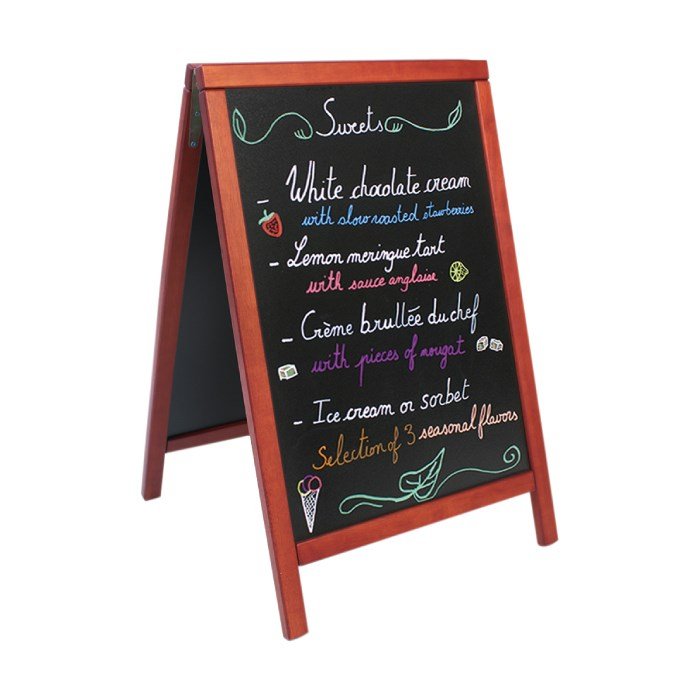 Sweets
- White chocolate cream
with slow roasted stawberries
- Lemon meringue tart
with sauce anglaise
- Crème brullée du chef
with pieces of nougat
- Ice cream or sorbet
Selection of 3 seasonal flavors